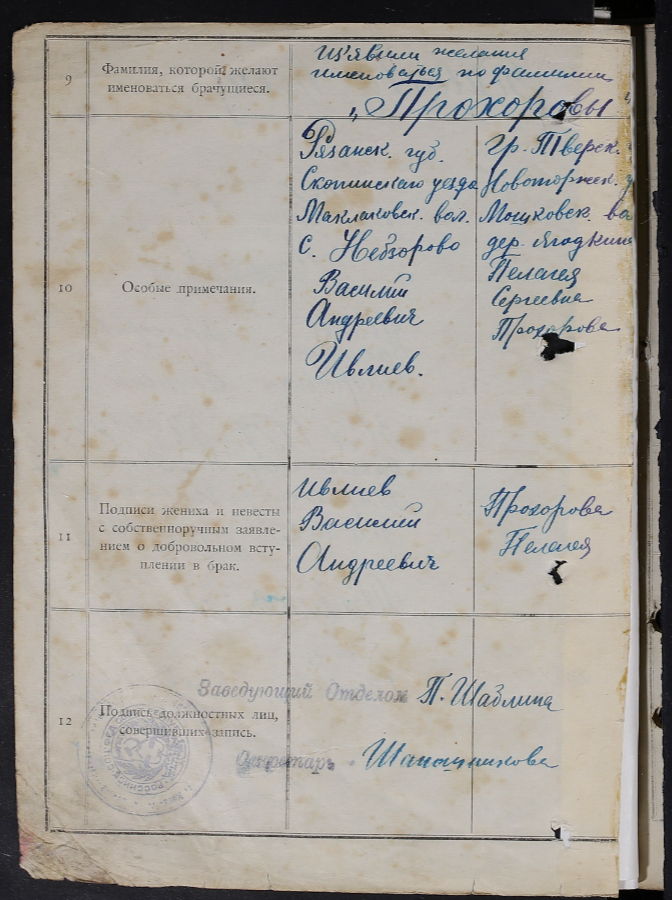 9
Фамилия, которой желают
именоваться брачущиеся.
Изъявили желания
именоваться по фамилии
„Прохоровы"
10
Особые примечания.
Рязанск. губ.
Скопинскаго уезда
Маклаковск. вол.
с. Небзорово
Василий
Андреевич
Ивлиев.
гр. Тверск.
Новоторжск. у
Мошковск. во
дер. Ягодкина
Пелагея
Сергеевна
Прохорова
11
Подписи жениха и невесты
с собственноручным заявле-
нием о добровольном всту-
плении в брак.
Ивлиев
Василий
Андреевич
Прохорова
Пелагея
12
Подпись должностных лиц,
совершивших запись.
Заведующий Отделом П. Шаблина
Секретарь Шапошникова